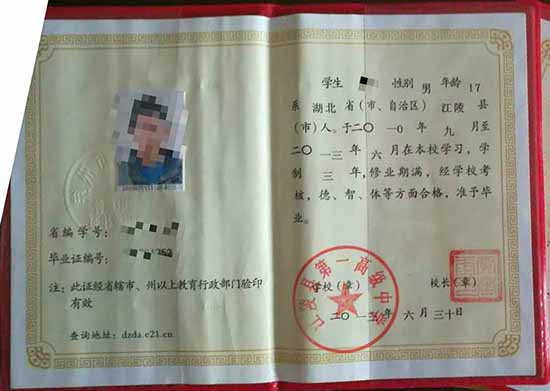 学生 性别 男 年龄 17
系 湖北 省(市、自治区) 江陵 县
(市)人。于二〇一〇年 九 月至
二〇一三年 六 月在本校学习,学
制 三 年,修业期满,经学校考
核,德、智、体等方面合格,准予毕
业。
省编学号:
毕业证编号:
注:此证经省辖市、州以上教育行政部门验印
有效
查询地址: dzda.e21.cn
江陵县第一高级中学
学校(章) 校长(章)
二〇一三年 六 月 三十日